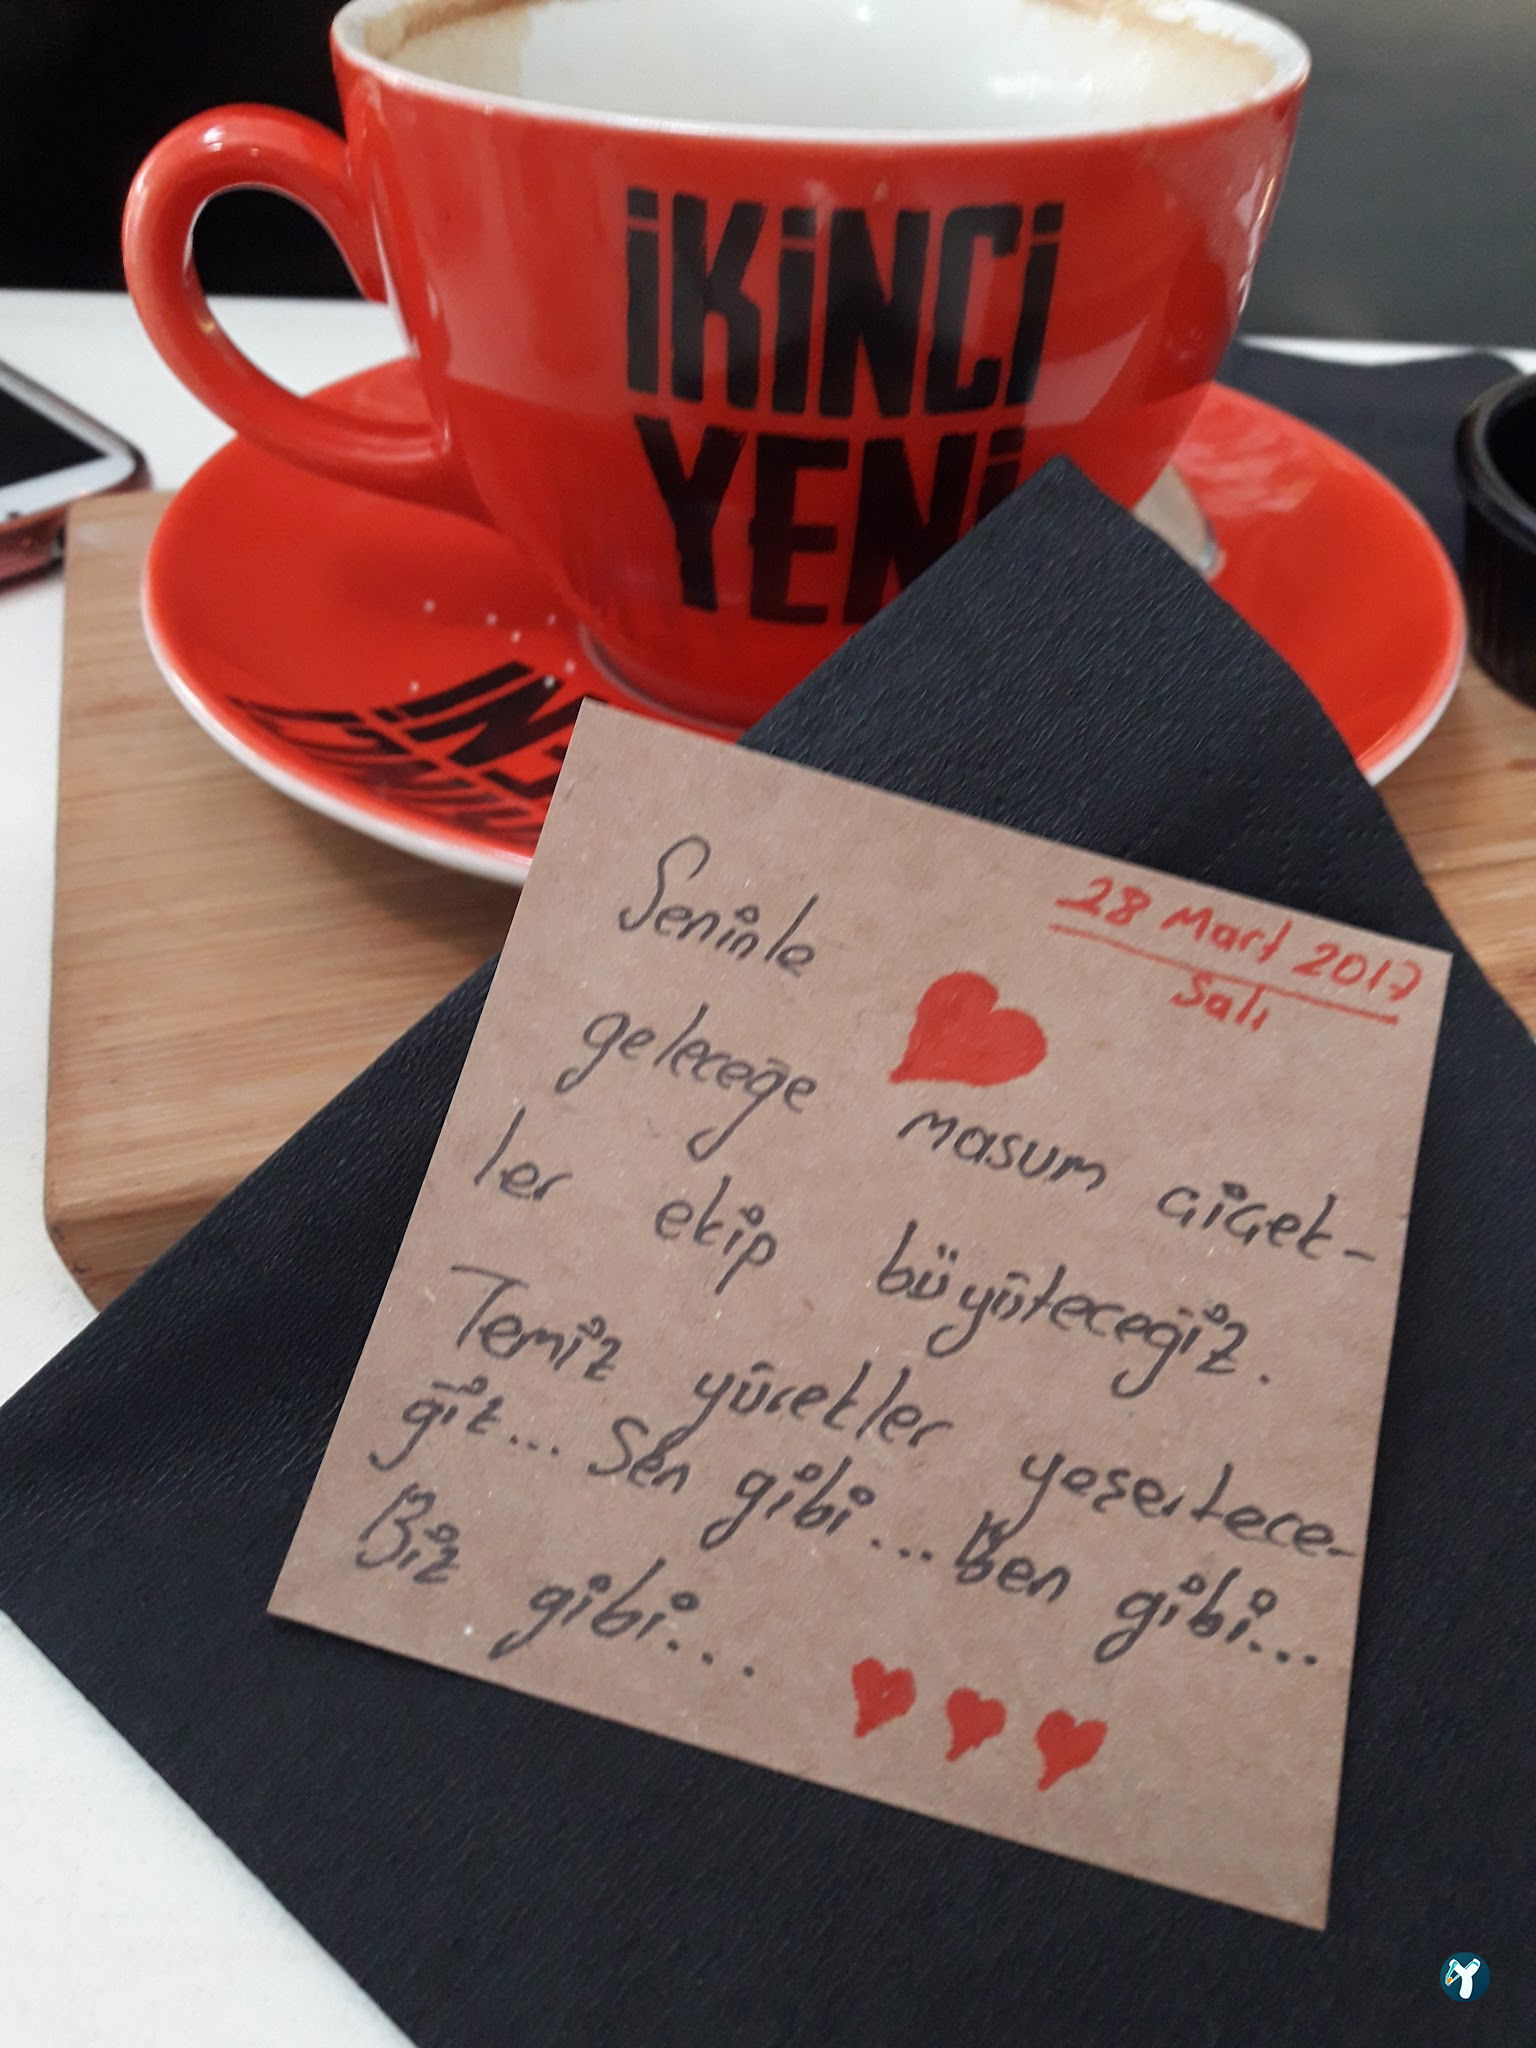 İKİNCİ
YENİ
28 Mart 2017
Salı
Seninle
geleceğe masum çiçek-
ler ekip büyüteceğiz.
Temiz yürekler yeşertece-
ğiz... Sen gibi... Ben gibi...
Biz gibi...